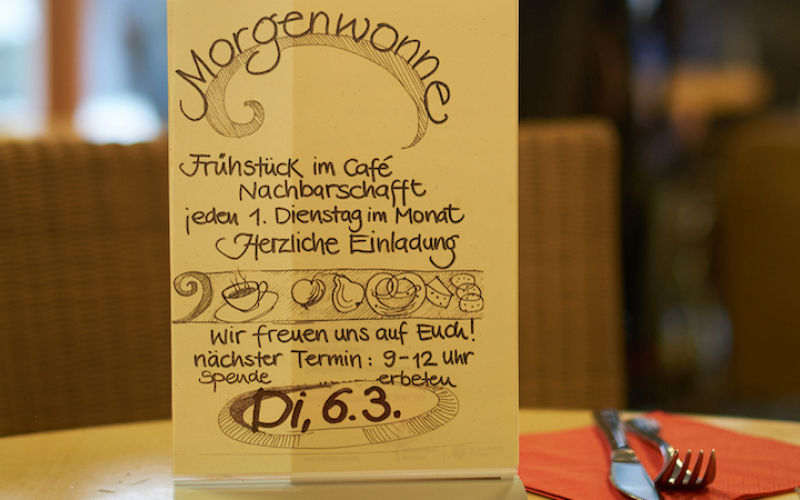 Morgenwonne
Frühstück im Café
Nachbarschafft
jeden 1. Dienstag im Monat
Herzliche Einladung
Wir freuen uns auf Euch!
nächster Termin: 9-12 Uhr
Spende erbeten
Di, 6.3.